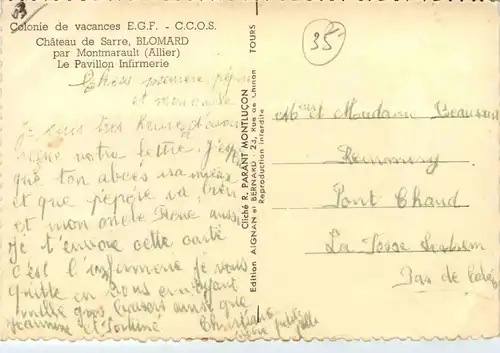 Colonie de vacances E.G.F. - C.C.O.S.
Château de Sarre, BLOMARD
par Montmarault (Allier)
Le Pavillon Infirmerie
35
Chers mémère pépère
et mon oncle
Je suis très heureuse d'avoir
reçue votre lettre. J'espère
que ton abcès va mieux
et que pépère va bien
et mon oncle aussi
Je t'envoie cette carte
c'est l'infirmerie je vous
quitte en vous envoyant
mille gros baisers ainsi que
Jeannine et
Christiane
votre petite
fille
Cliché R. PARANT MONTLUÇON
Edition AIGNAN et BERNARD - 23, Rue de Chinon TOURS
Reproduction interdite
et Madame
Pont
La
Pas de Calais